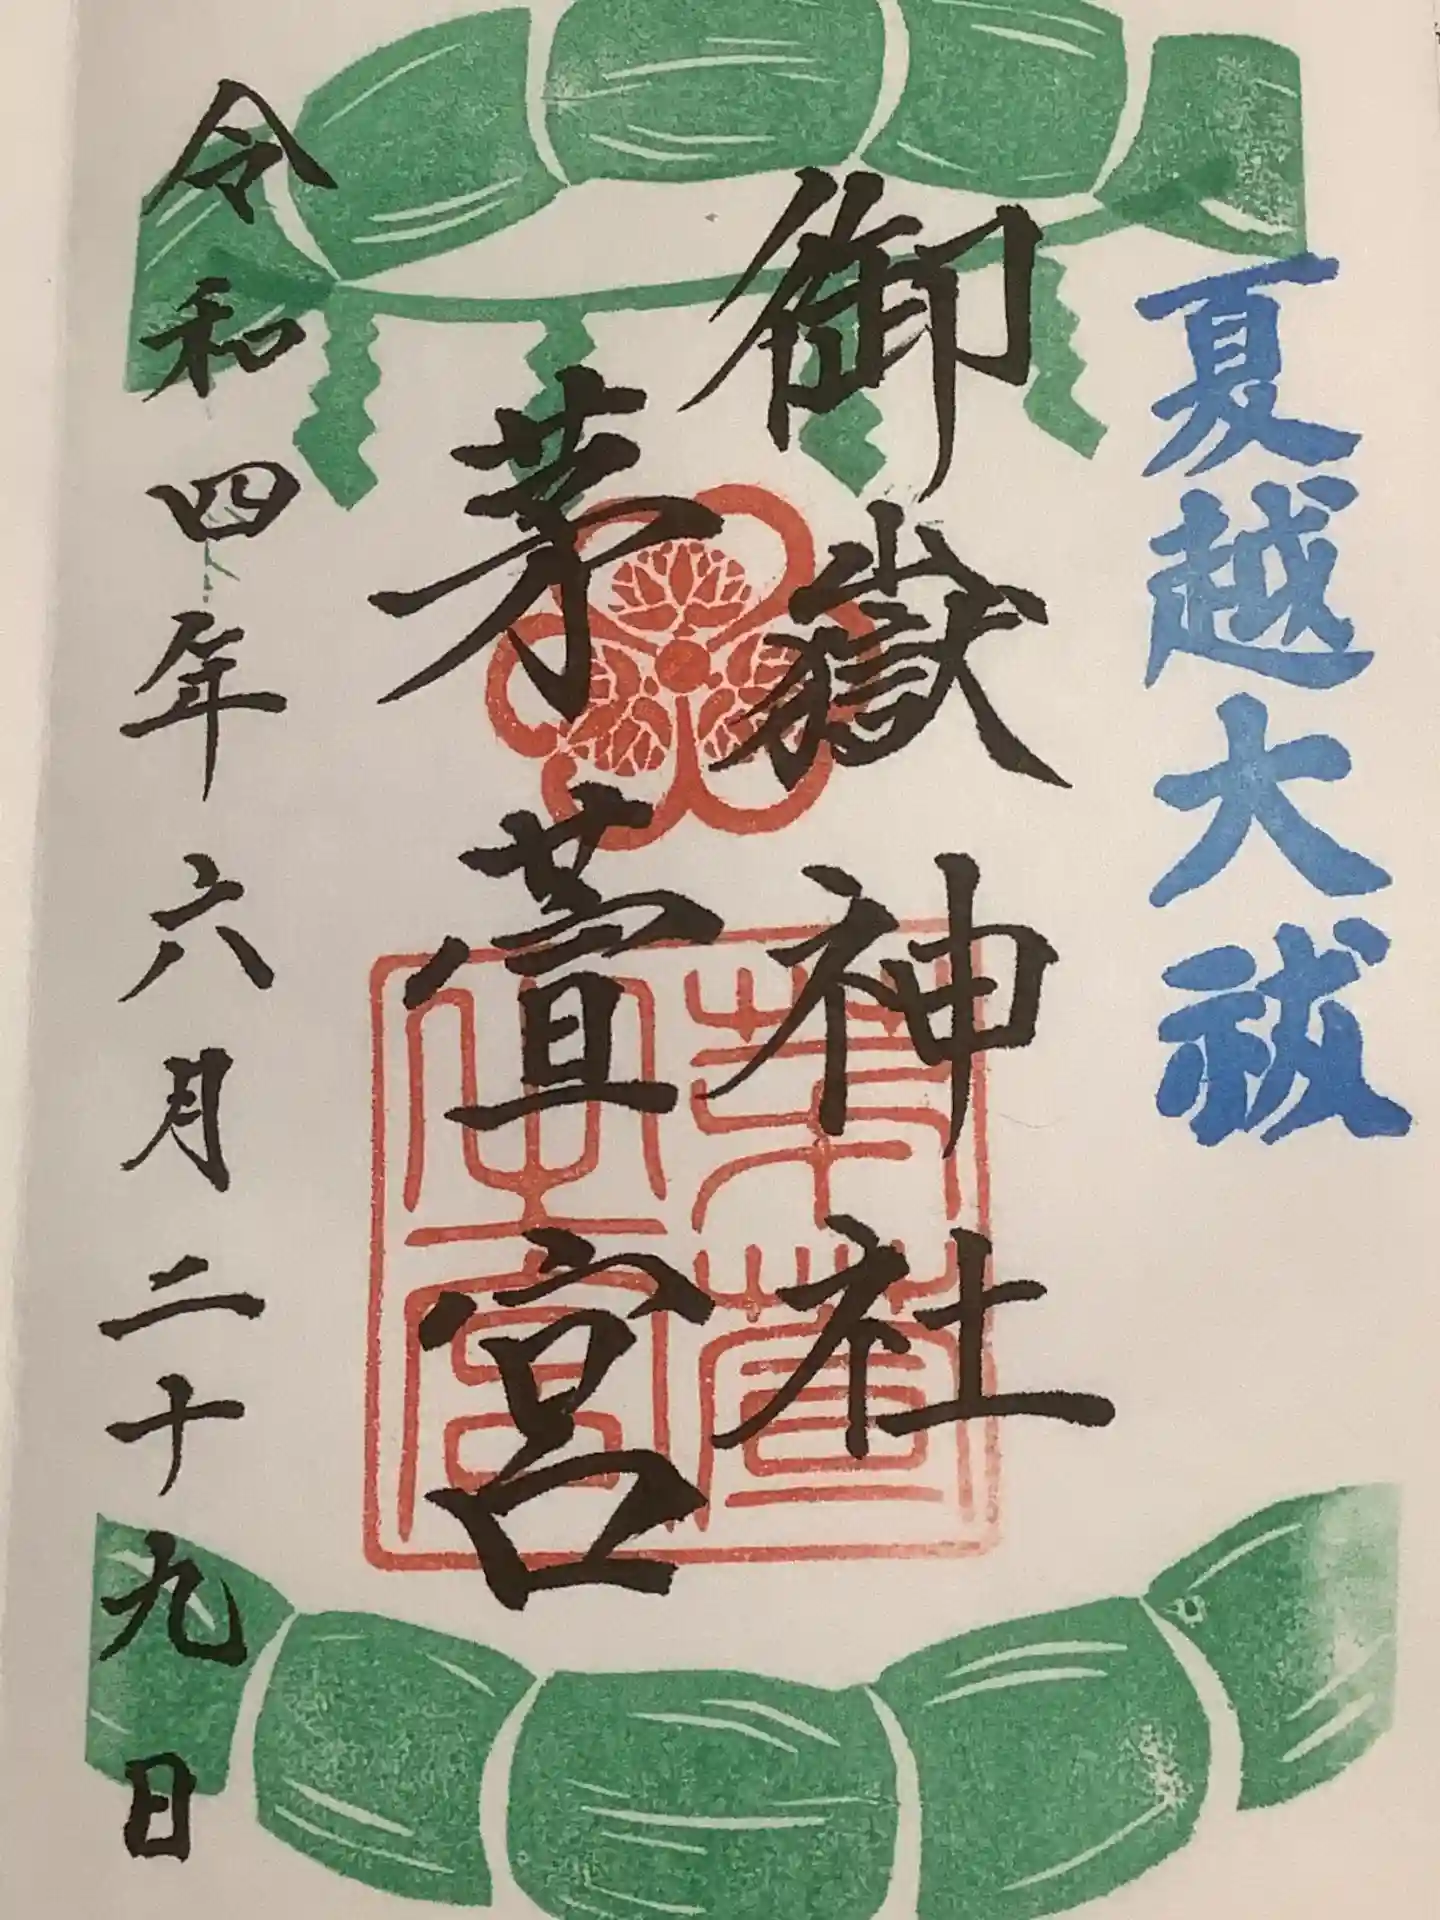 夏越大祓
御嶽神社
茅萱宮
令和四年六月二十九日
茅萱之宮